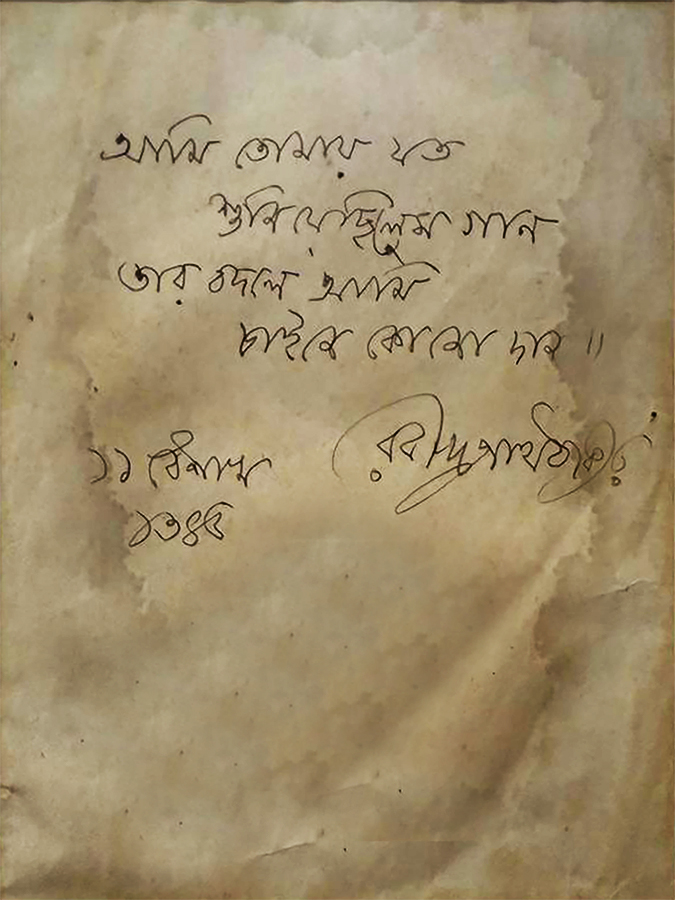 আমি তোমায় যত
শুনিয়েছিলুম গান
তার বদলে আমি
চাইনে কোনো দান ॥
১১ বৈশাখ রবীন্দ্রনাথ ঠাকুর
১৩৪৫